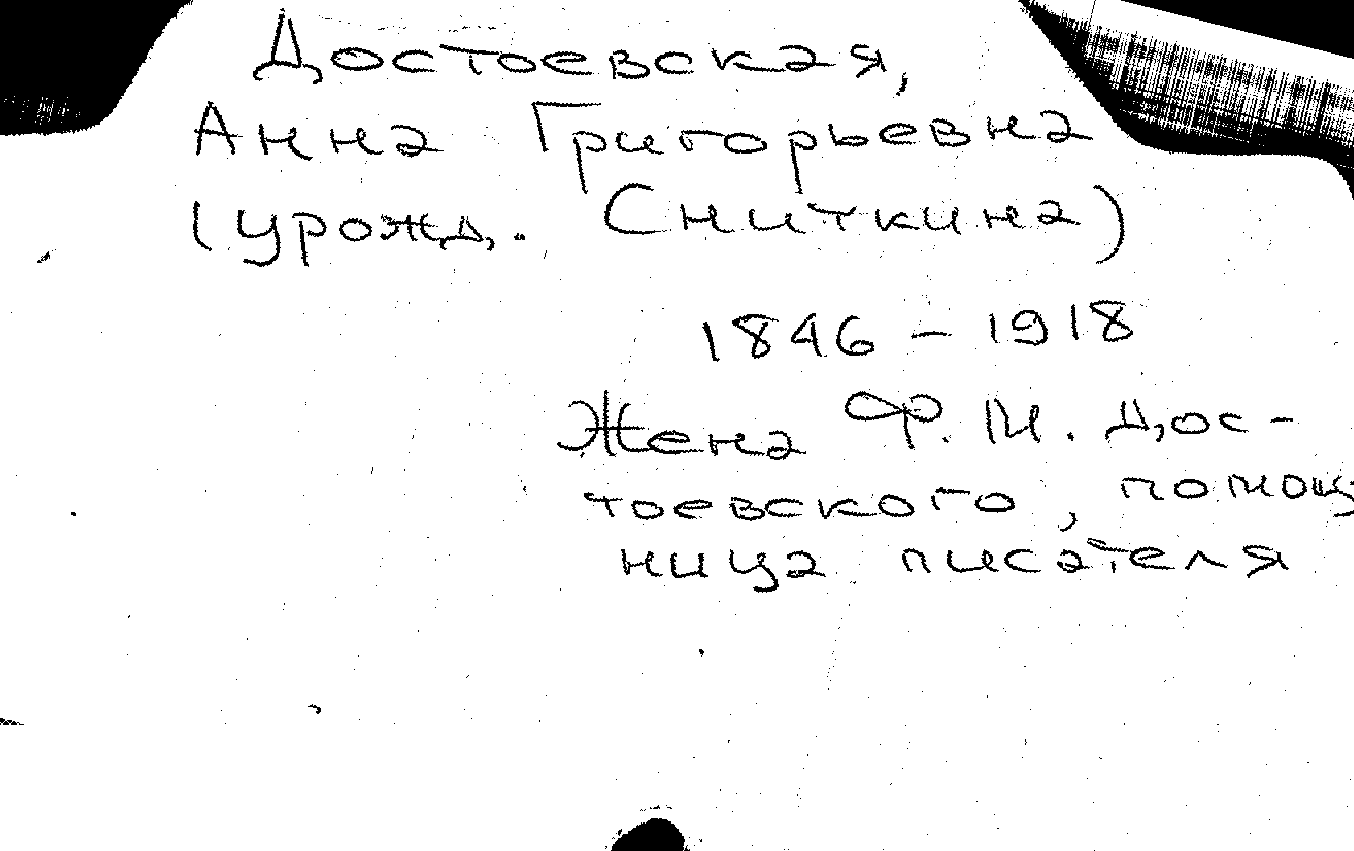 Достоевская,
Анна Григорьевна
(урожд. Сниткина)
1846 - 1918
Жена Ф. М. Дос-
тоевского, помощ
ница писателя